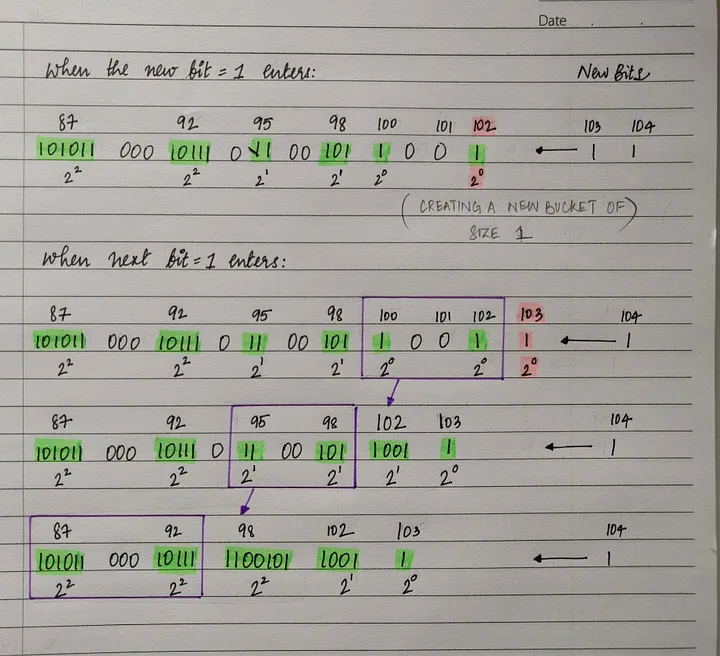 Date . .
When the new bit = 1 enters: New Bits
87 92 95 98 100 101 102 103 104
101011 000 10111 0 11 00 101 1 0 0 1 ← 1 1
2² 2² 2¹ 2¹ 2⁰ 2⁰
(CREATING A NEW BUCKET OF
SIZE 1)
When next bit = 1 enters:
87 92 95 98 100 101 102 103 104
101011 000 10111 0 11 00 101 1 0 0 1 1 ← 1
2² 2² 2¹ 2¹ 2⁰ 2⁰ 2⁰
87 92 95 98 102 103 104
101011 000 10111 0 11 00 101 1001 1 ← 1
2² 2² 2¹ 2¹ 2¹ 2⁰
87 92 98 102 103 104
101011 000 10111 1100101 1001 1 ← 1
2² 2² 2² 2¹ 2⁰